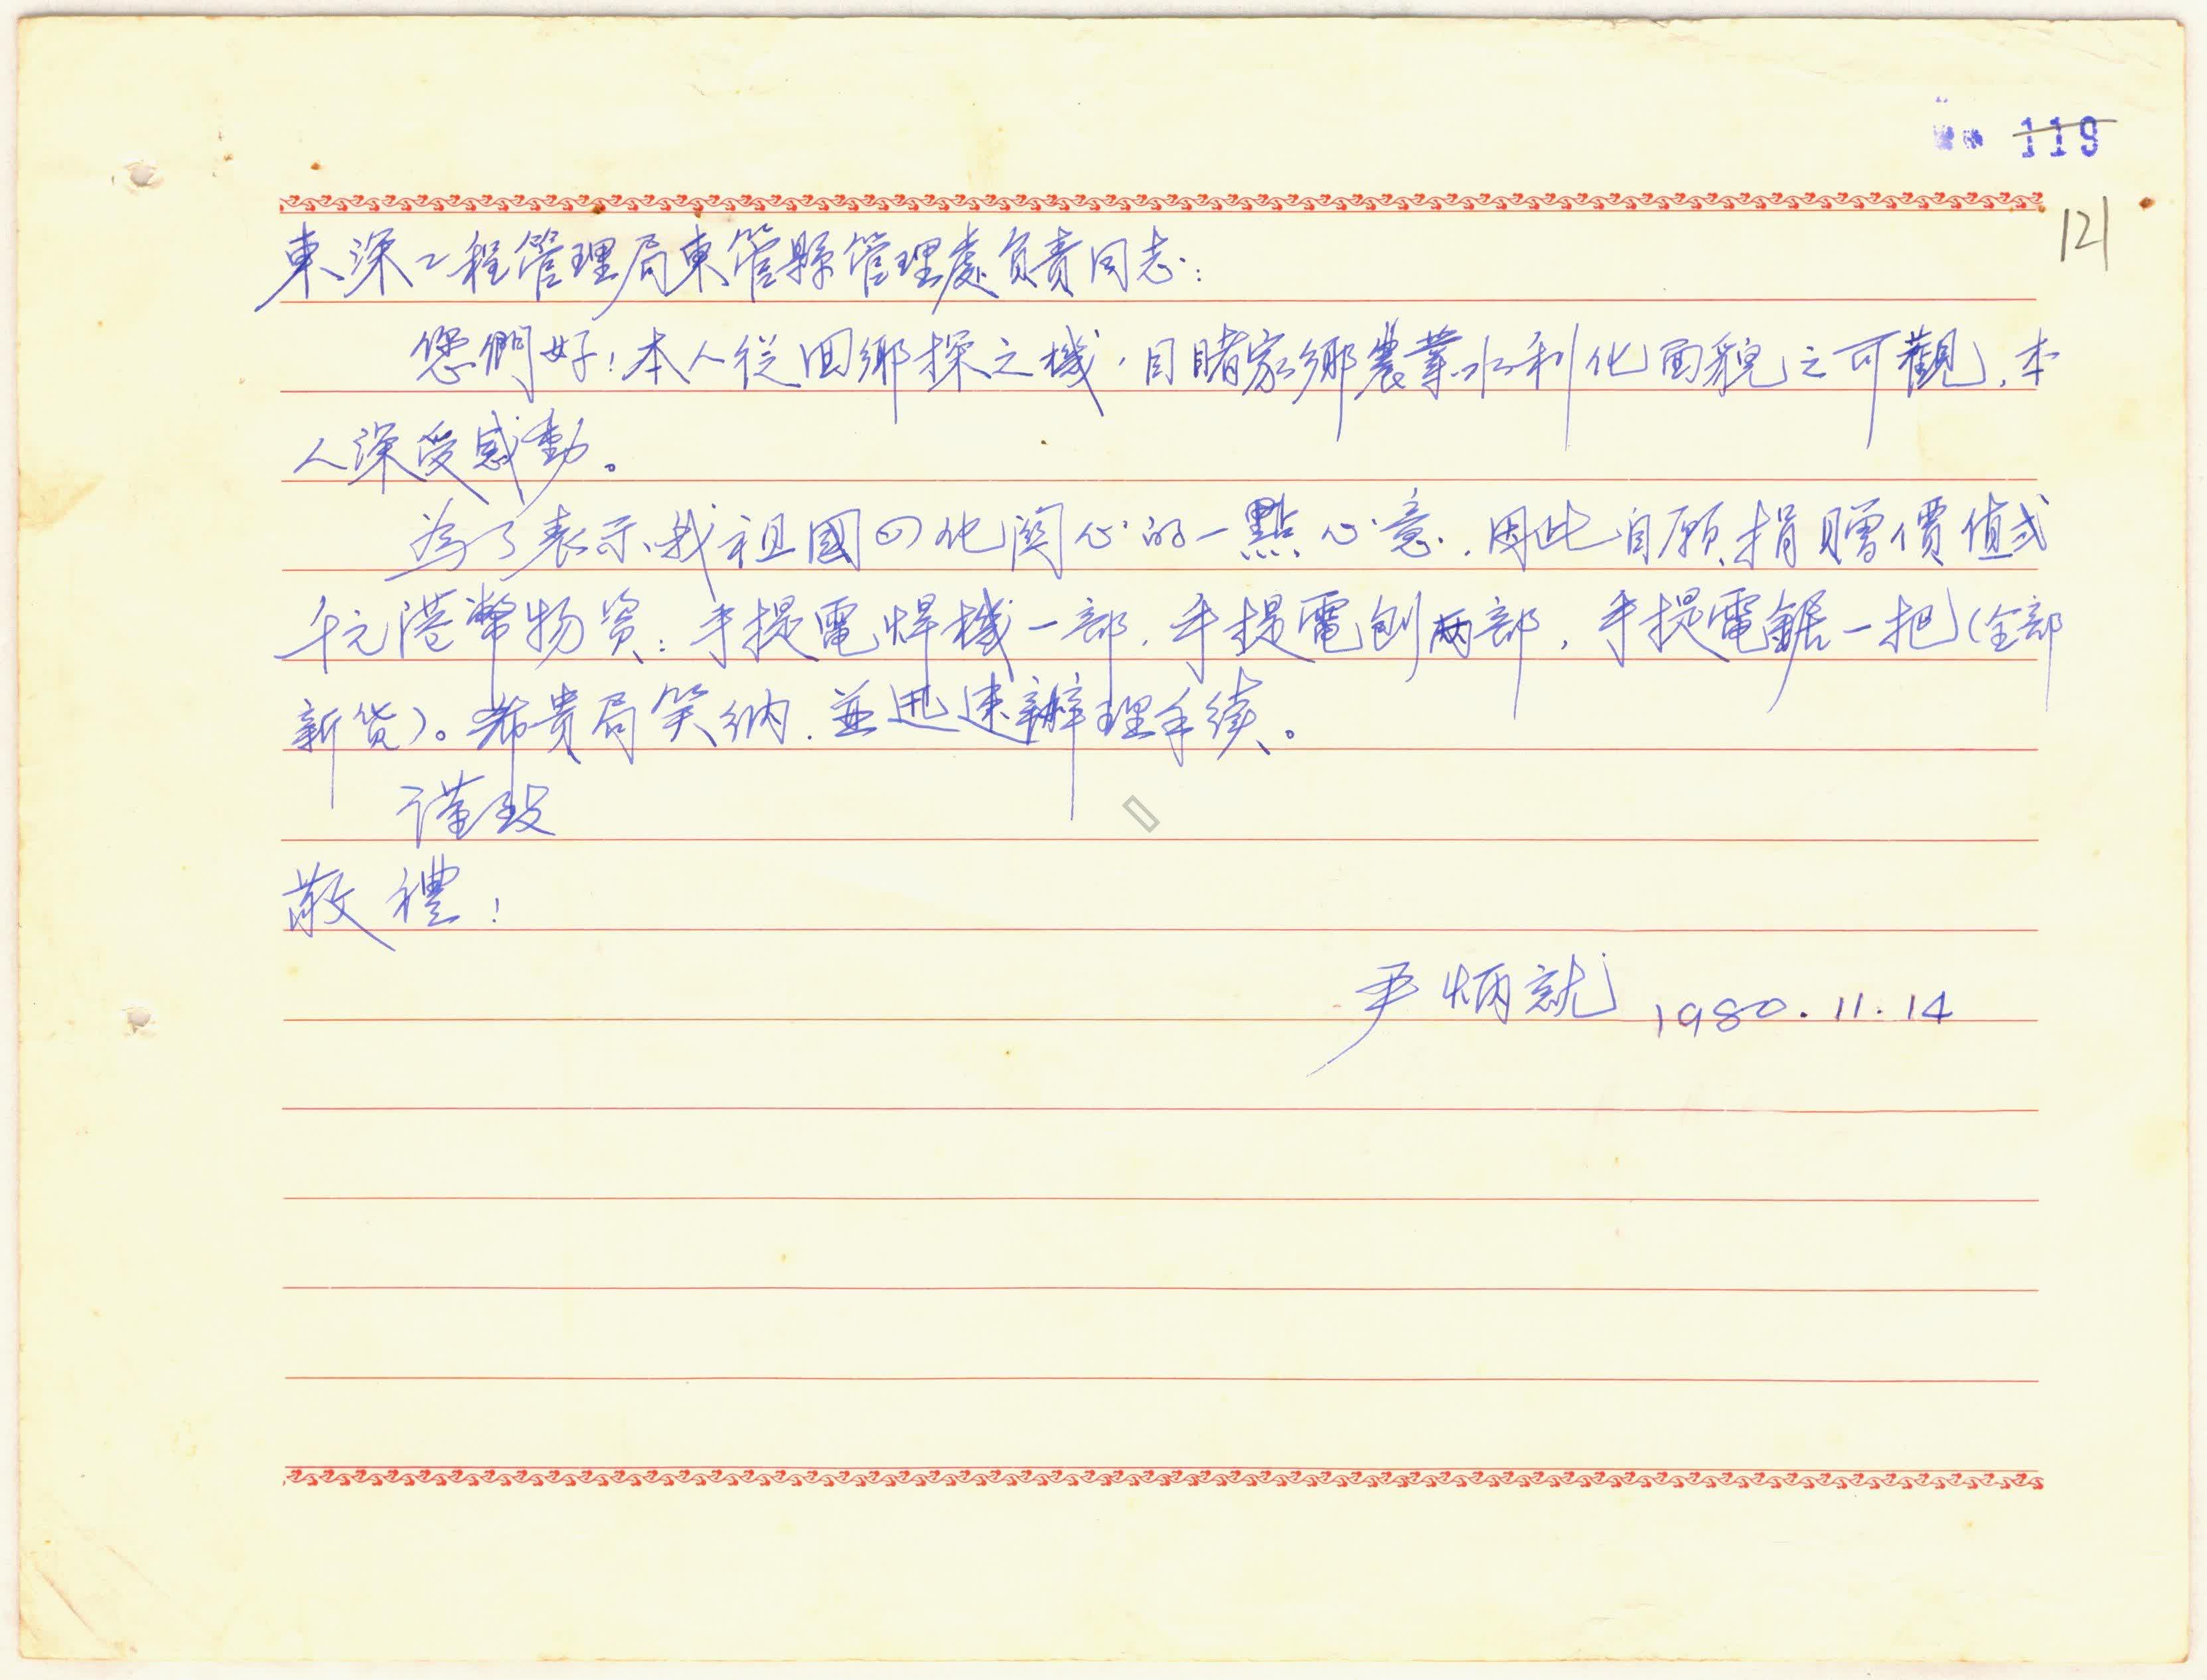 119
121
東深工程管理局東管縣管理處負責同志:
您們好!本人從回鄉探之機,目睹家鄉農業水利化面貌之可觀,本
人深受感動。
為了表示我祖國四化関心的一點心意,因此自願捐贈價值弍
千元港幣物资:手提電焊機一部,手提電刨両部,手提電鋸一把(全部
新货)。希貴局笑纳,並迅速辦理手续。
谨致
敬禮!
尹炳就 1980.11.14